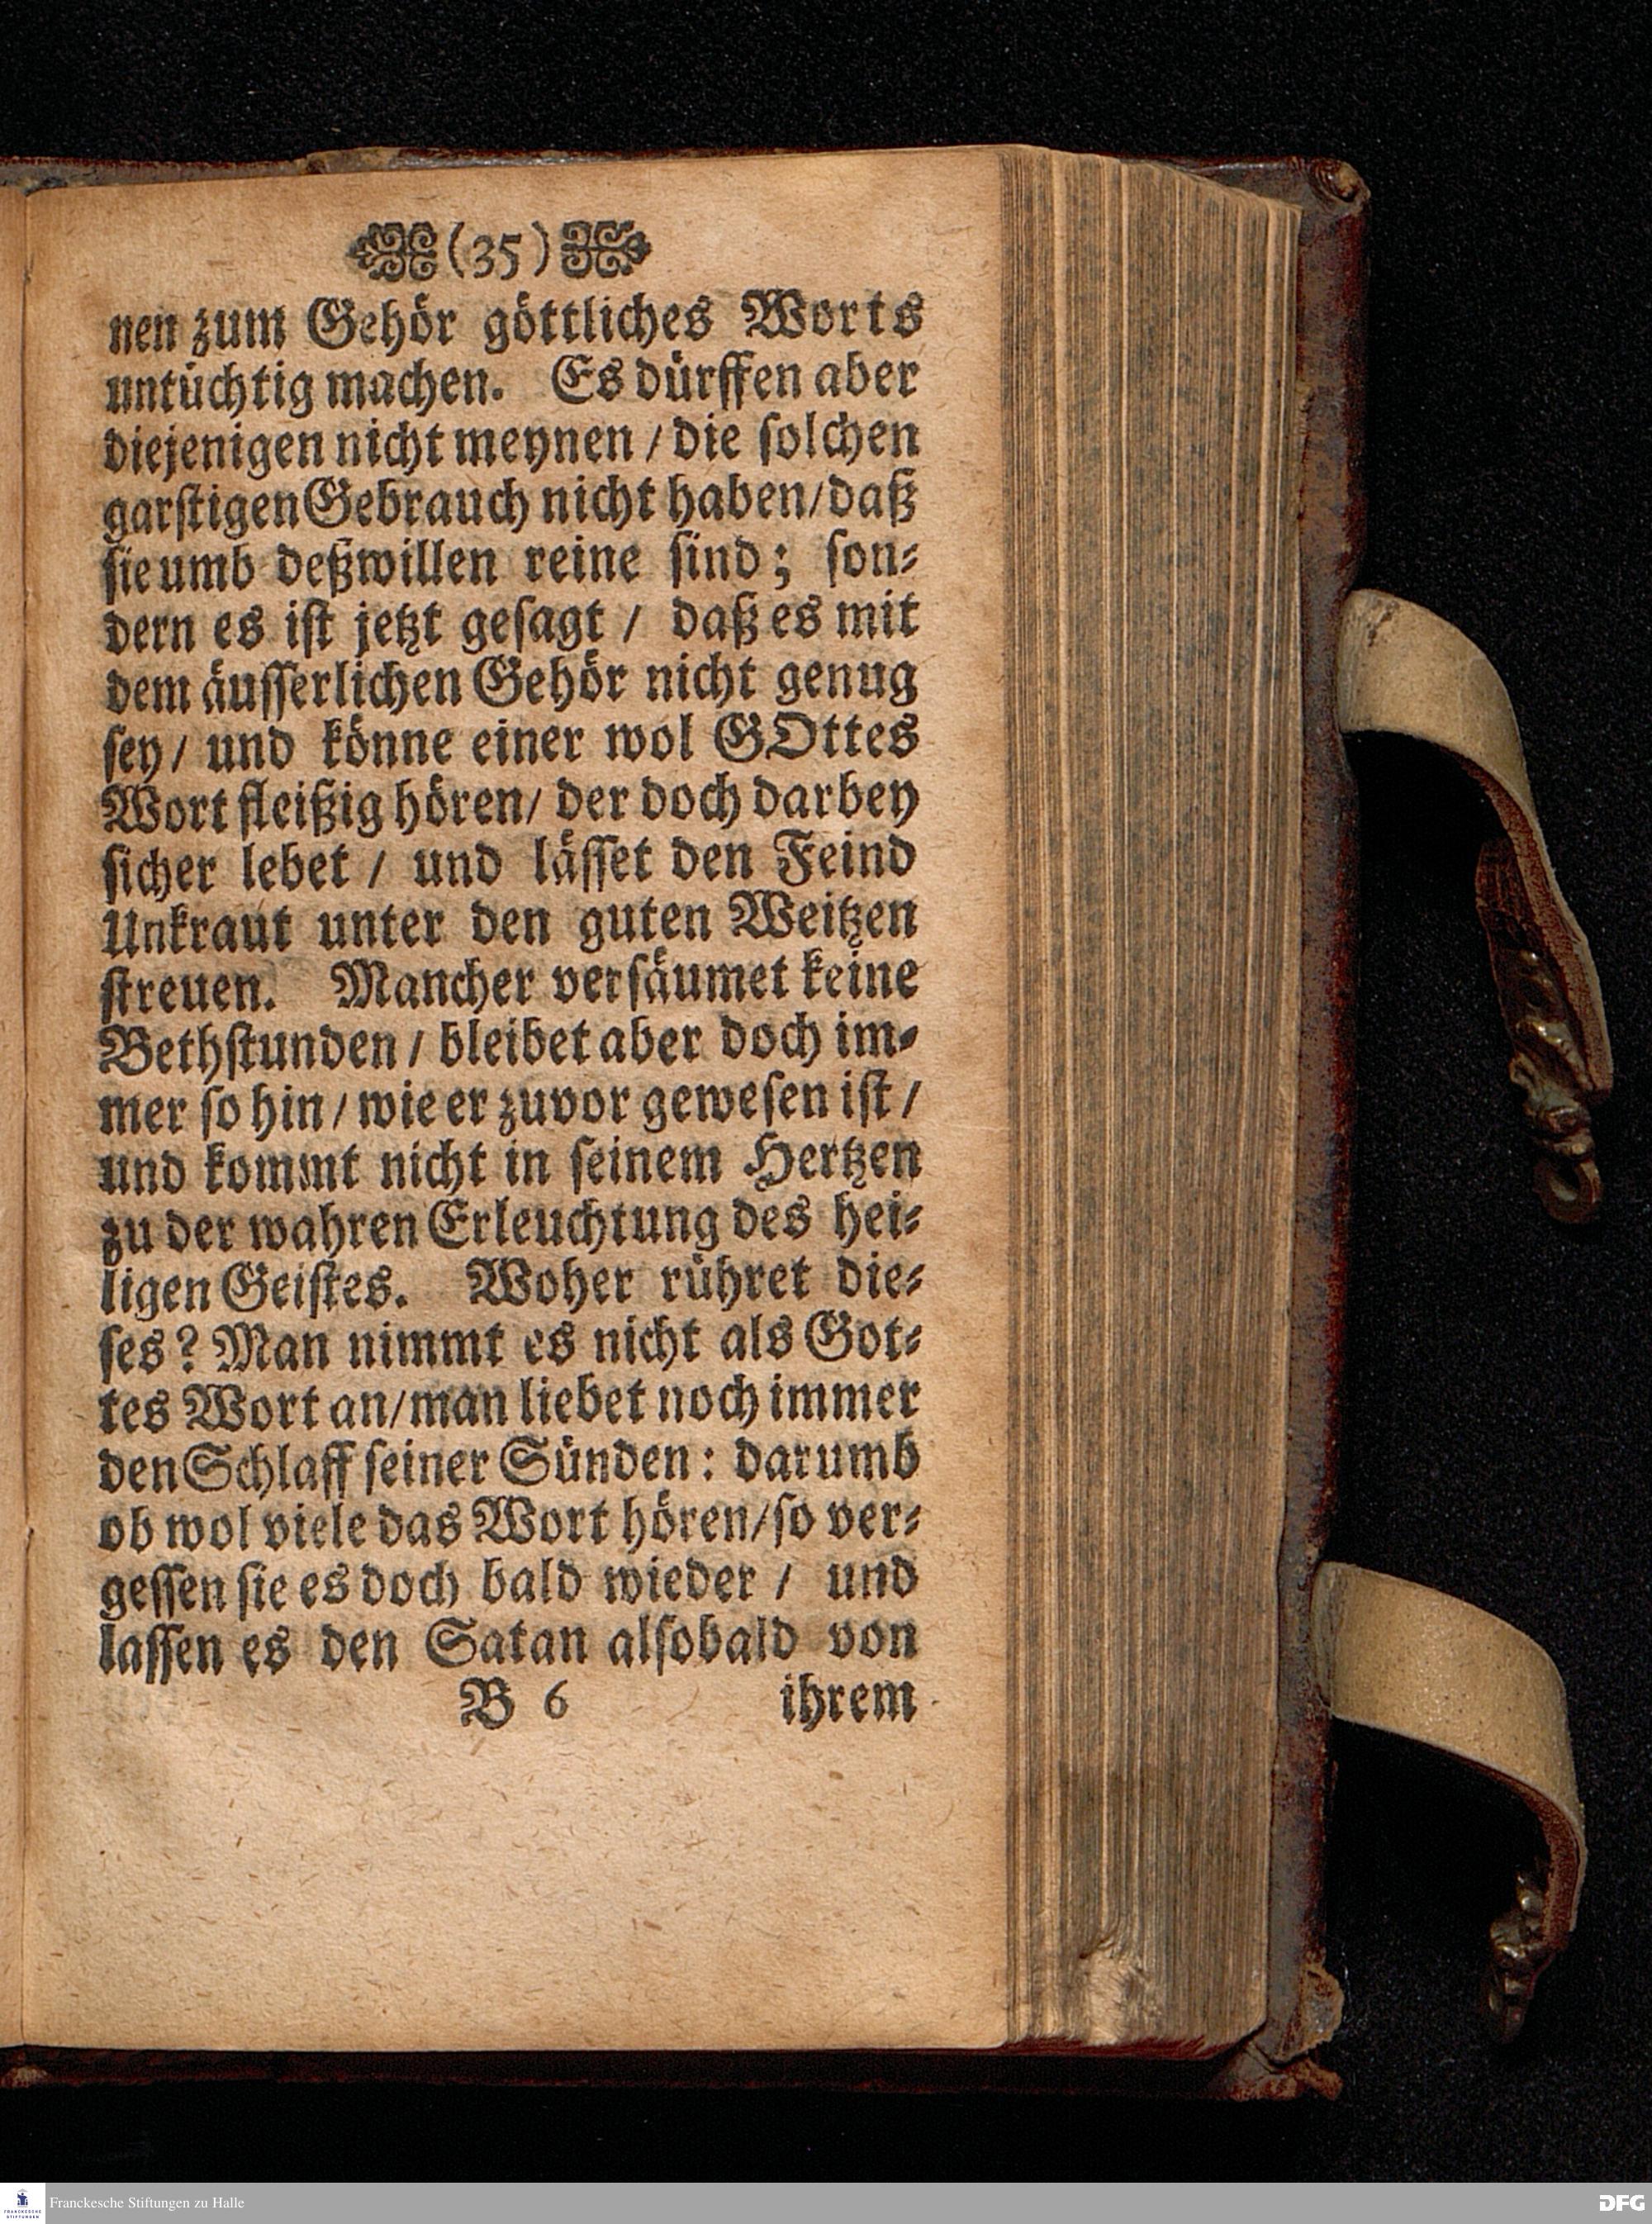 (35)
nen zum Gehör göttliches Worts
untüchtig machen. Es dürffen aber
diejenigen nicht meynen / die ſolchen
garſtigen Gebrauch nicht haben/ daß
ſie umb deßwillen reine ſind; ſon⸗
dern es iſt jetzt geſagt / daß es mit
dem äuſſerlichen Gehör nicht genug
ſey / und könne einer wol GOttes
Wort fleißig hören/ der doch darbey
ſicher lebet / und läſſet den Feind
Unkraut unter den guten Weitzen
ſtreuen. Mancher verſäumet keine
Bethſtunden / bleibet aber doch im⸗
mer ſo hin / wie er zuvor geweſen iſt /
und kommt nicht in ſeinem Hertzen
zu der wahren Erleuchtung des hei⸗
ligen Geiſtes. Woher rühret die⸗
ſes? Man nimmt es nicht als Got⸗
tes Wort an/ man liebet noch immer
den Schlaff ſeiner Sünden: darumb
ob wol viele das Wort hören/ ſo ver⸗
geſſen ſie es doch bald wieder / und
laſſen es den Satan alſobald von
B 6 ihrem
FRANCKESCHE STIFTUNGEN
Franckesche Stiftungen zu Halle
DFG